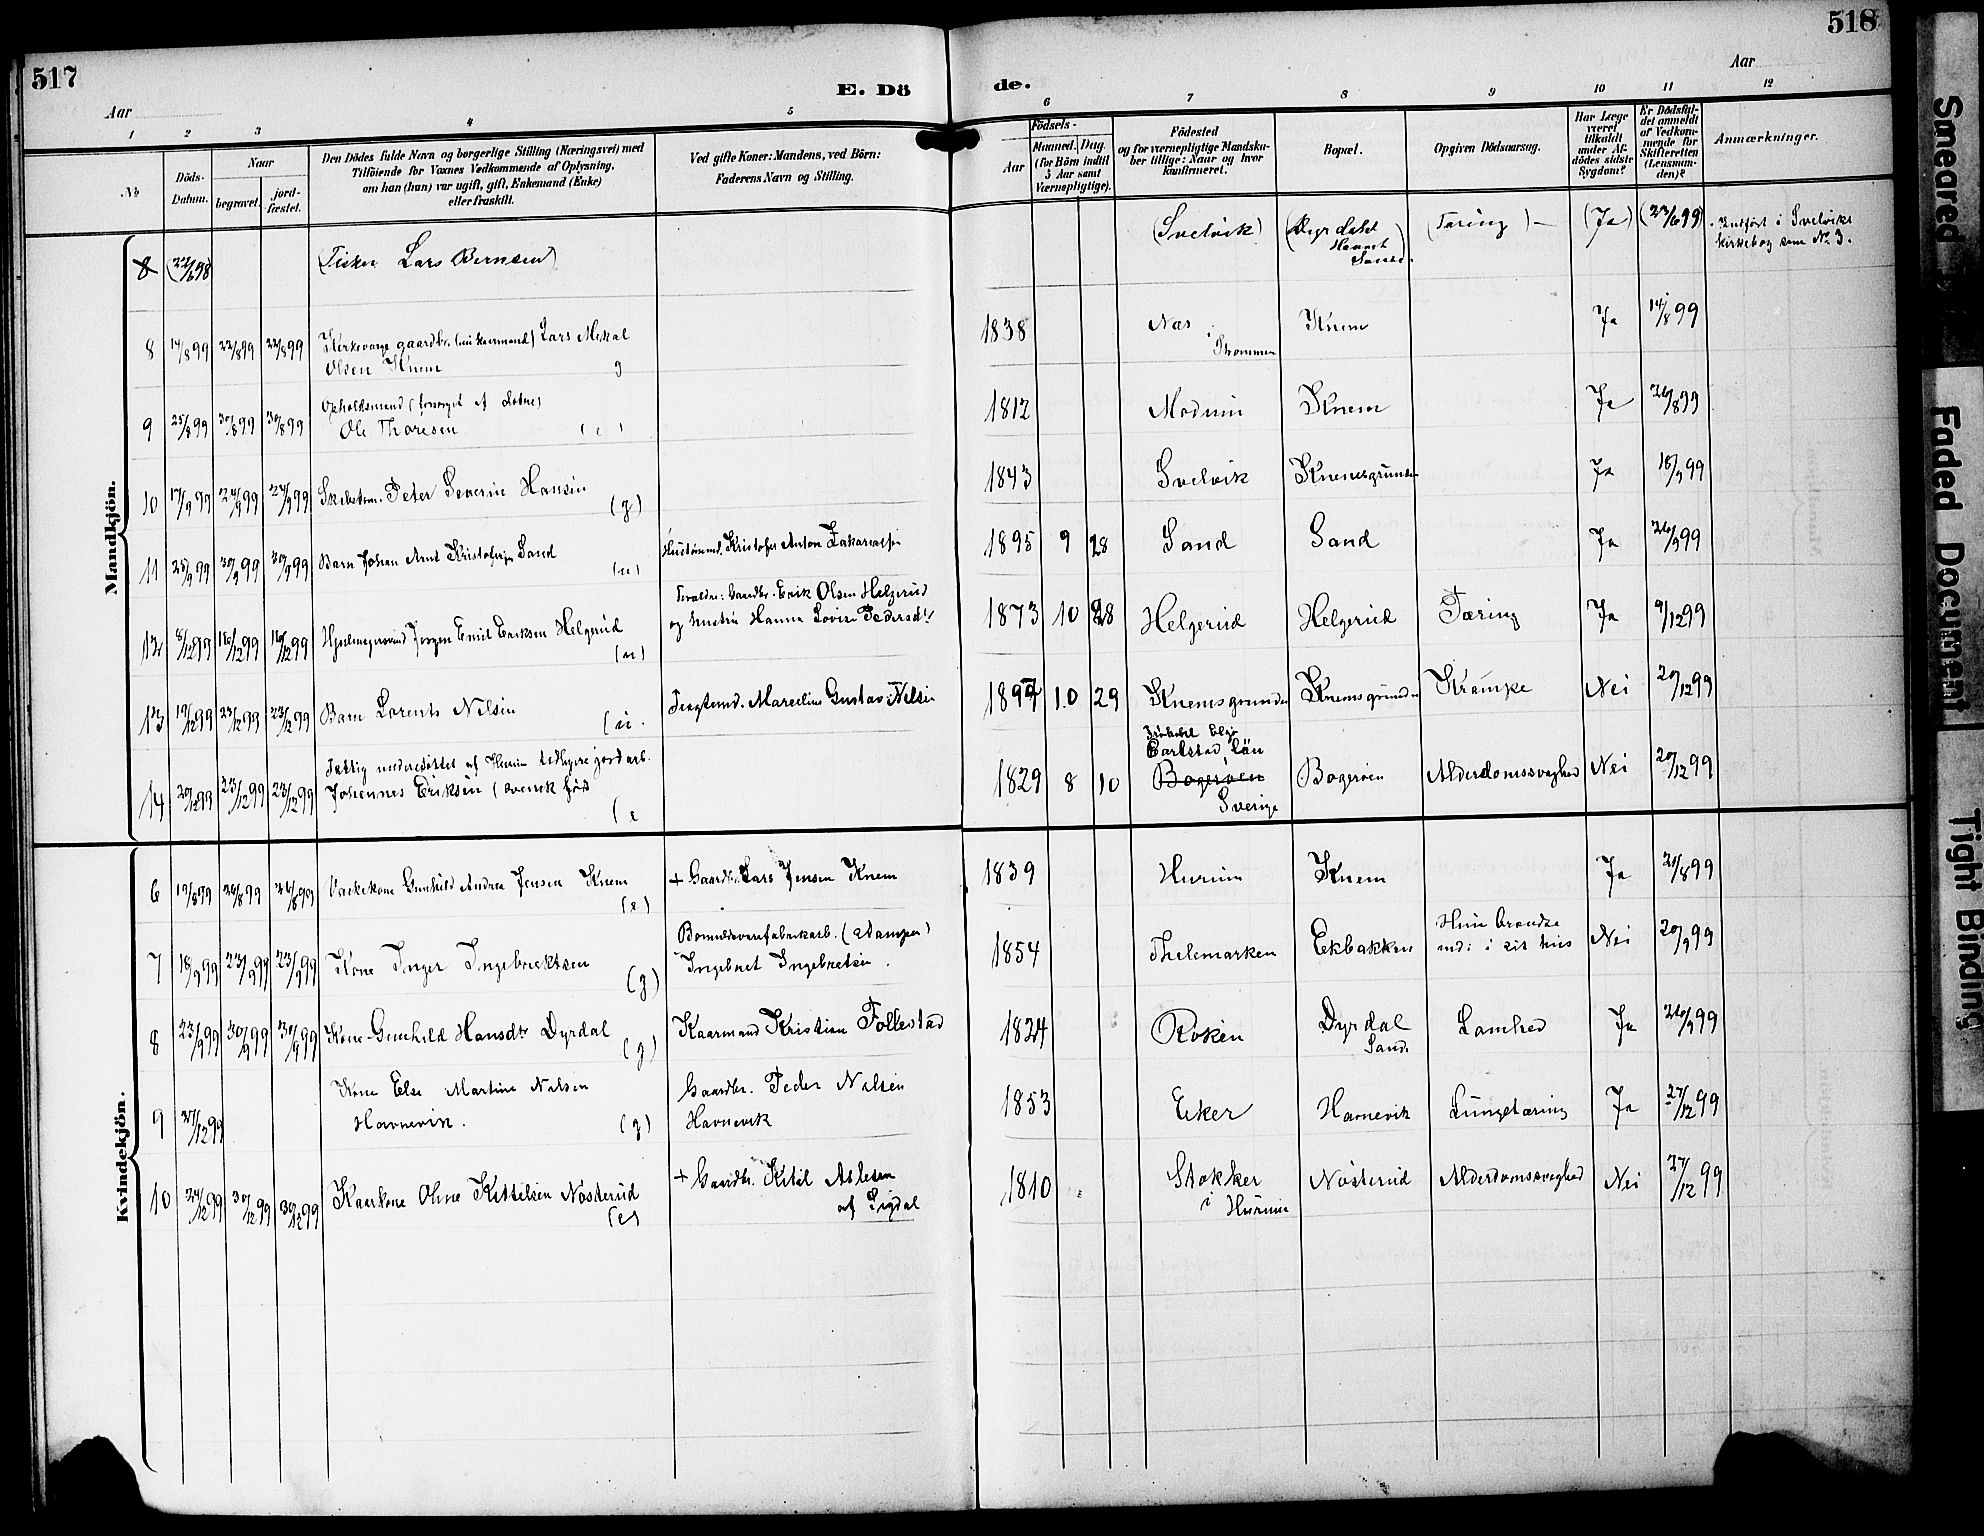 517
518
Aar
E. Dö
de.
Aar
1 2 3 4 5 6 7 8 9 10 11 12
No
Döds-Datum.
Naar
begravet.
jord-fæstet.
Den Dödes fulde Navn og borgerlige Stilling (Næringsvei) med
Tilföiende for Voxnes Vedkommende af Oplysning,
om han (hun) var ugift, gift, Enkemand (Enke)
eller fraskilt.
Ved gifte Koner: Mandens, ved Börn:
Faderens Navn og Stilling.
Födsels-
Aar
Maaned.
Dag.
(for Börn indtil
5 Aar samt
Værnepligtige).
Födested
og for værnepligtige Mandska-
ber tillige: Naar og hvor
konfirmeret.
Bopæl.
Opgiven Dödsaarsag.
Har Læge
været
tilkaldt
under Af-
dödes sidste
Sygdom?
Er Dödsfal-
det anmeldt
af Vedkom-
mende for
Skifteretten
(Lensman-
den)?
Anmærkninger.
Mandkjön.
8 (22/6 98) (Fisker Lars Bernsen) (Svelvik) (Dyrdalst Sande. (Tæring) – (Ja) (23/6 99) Indfört i Svelviks
kirkebog som No 3.
8 14/8 99 22/8 99 22/8 99 Kirkeværge gaardbr. Lars Mikal
Olsen Knem g 1838 Næs i Knem Ja 14/8 99
9 25/8 99 30/8 99 30/8 99 Opholdsmand
Ole Thoresen (e) 1812 Modum Knem Ja 26/8 99
10 17/9 99 24/9 99 24/9 99 Skibstøm. Peter Severin Hansen (g) 1843 Svelvik Knemsgrunden Ja 18/9 99
11 25/9 99 30/9 99 30/9 99 Barn Johan Arnt Kristofersen Sand (u) Kristofer Anton Zakariassen 1895 9 28 Sand Sand Ja 26/9 99
12 8/12 99 16/12 99 16/12 99 Jørgen Emil Eriksen Helgerud (u) Foreldre: Gaardbr. Erik Olsen Helgerud
og hustru Hanna Lovise Pedersdtr 1873 10 28 Helgerud Helgerud Tæring Ja 9/12 99
13 19/12 99 23/12 99 23/12 99 Barn Lorents Nilsen (u. Marcelius Gustav Nilsen 1897 10 29 Knemsgrunden Knemsgrunden Krampe Nei 20/12 99
14 20/12 99 23/12 99 23/12 99 Fattig understöttet af Hurum tidligere jordarb.
Johannes Eriksen (svensk föd (e 1829 8 10 Carlstad Län
Bogerøen
Sverige Bogerøen Alderdomssvaghed Nei 20/12 99
Kvindekjön.
6 19/8 99 26/8 99 26/8 99 Gunhild Andrea Jensen Knem (e) + Gaardbr. Lars Jensen Knem 1839 Hurum Knem Ja 21/8 99
7 18/9 99 23/9 99 23/9 99 Kone Inger Ingebrektsen (g) Bomuldsvarefabrikarb.
Ingebret Ingebretsen. 1854 Thelemarken Ekbakken Hun brændte
ind i sit hus Nei 20/9 99
8 23/9 99 30/9 99 30/9 99 Kone Gunhild Hansdtr Dyrdal (g) Kaarmand Kristian Follestad 1824 Røken Dyrdal
Sande Lamhed Ja 26/9 99
9 27/12 99 Kone Else Martine Nilsen
Havnevik. (g) Gaardbr. Peder Nilsen
Havnevik 1853 Eker Havnevik Lungetæring Ja 27/12 99
10 24/12 99 30/12 99 30/12 99 Kaarkone Oline Kittelsen Nøsterud (e) + Gaardbr. Kitil Aslesen
af Sigdal 1810 Stokker
i Hurum Nøsterud Alderdomssvaghed Nei 27/12 99
Smeared
Faded Document
Tight Binding